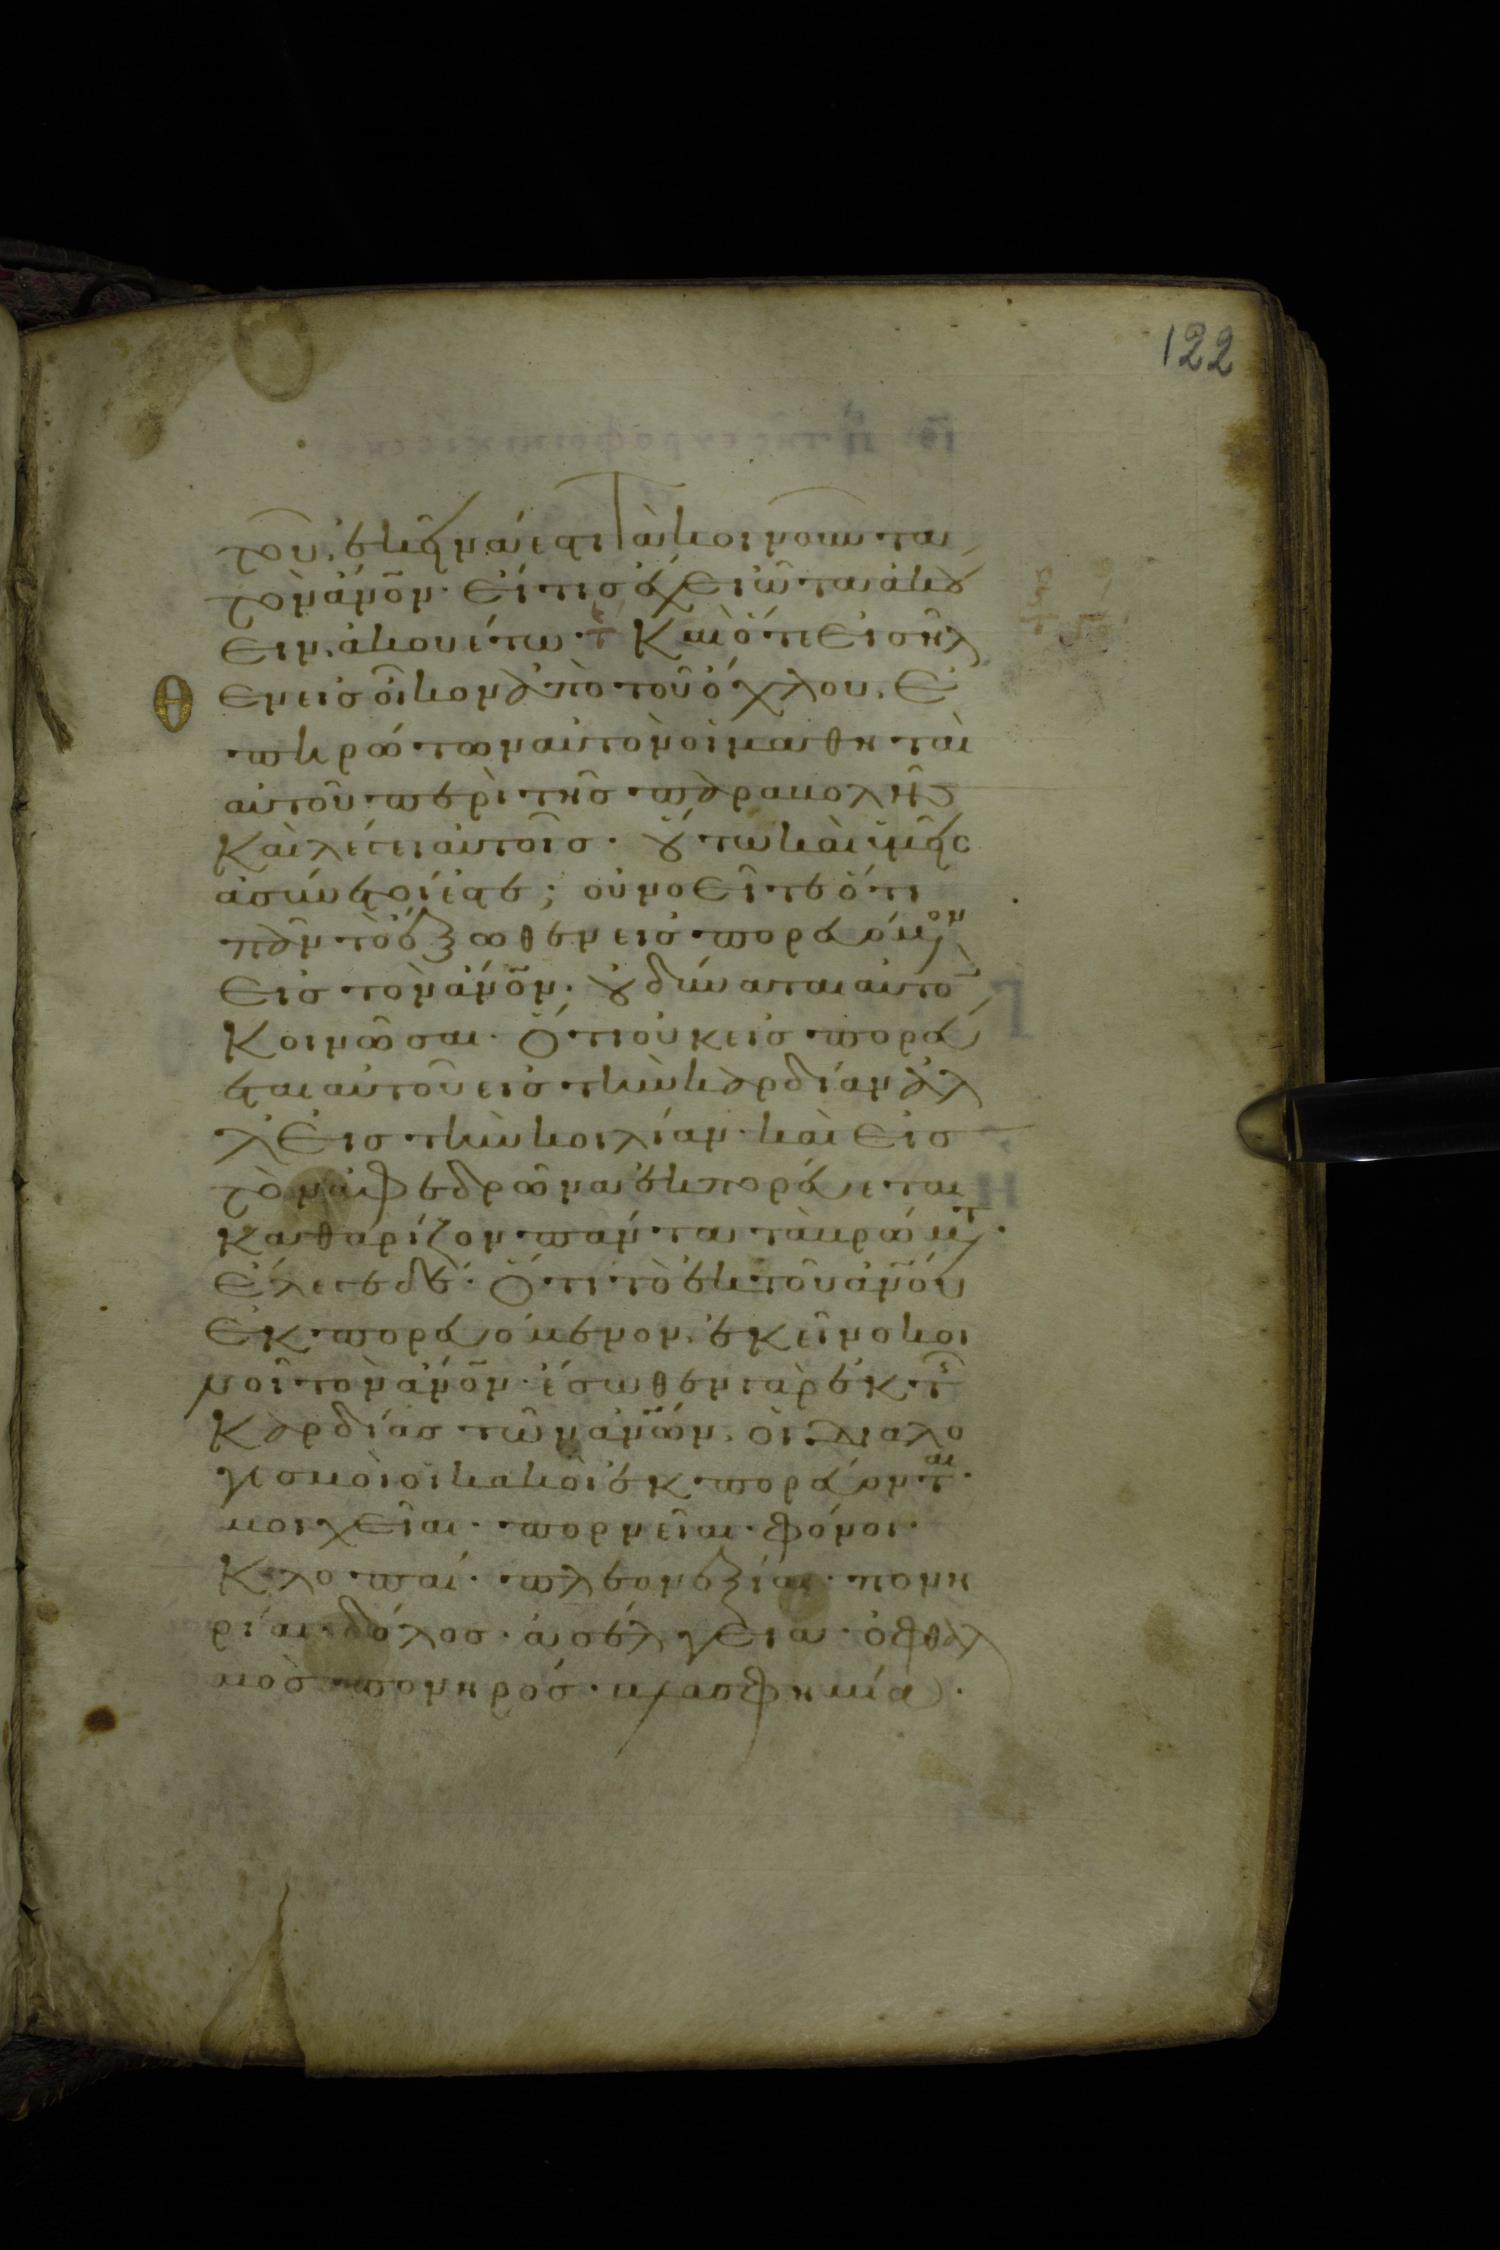 122
του. ἐκεῖνά ἐστι τὰ κοινοῦντα
τὸν ἄνο̅ν. εἴ τις ἔχει ὦτα ἀκού
ειν. ἀκουέτω· Καὶ ὅτε εἰσῆλ
θ
εν εἰς οἶκον ἀπὸ τοῦ ὄχλου. ἐ
πηρώτων αὐτὸν οἱ μαθηταὶ
αὐτοῦ περὶ τῆς παραβολῆς
Καὶ λέγει αὐτοῖς· οὕτω καὶ ὑμεῖς
ἀσύνετοί ἐστε; οὐ νοεῖτε ὅτι
πᾶν τὸ ἔξωθεν εἰσπορευόμενον
εἰς τὸν ἄνο̅ν· οὐ δύναται αὐτὸ
Κοινῶσαι· Ὅτι οὐκ εἰσπορεύ
εται αὐτοῦ εἰς τὴν καρδίαν ἀλ
λ' εἰς τὴν κοιλίαν· καὶ εἰς
τὸν ἀφεδρῶνα ἐκπορεύεται
Καθαρίζον πάντα τὰ βρώματ·
ἔλεγε δέ· Ὅτι τὸ ἐκ τοῦ ἀνο̅υ
ἐκπορευόμενον. ἐκεῖνο κοι
νοῖ τὸν ἄνο̅ν· ἔσωθεν γὰρ ἐκ τῆς
Καρδίας τῶν ἀνω̅ν. οἱ διαλο
γισμοὶ οἱ κακοὶ ἐκπορεύονται·
μοιχεῖαι· πορνεῖαι· φόνοι·
Κλοπαί· πλεονεξίαι· πονη
ρίαι· δόλος· ἀσέλγεια· ὀφθαλ
μὸς πονηρός· βλασφημία·